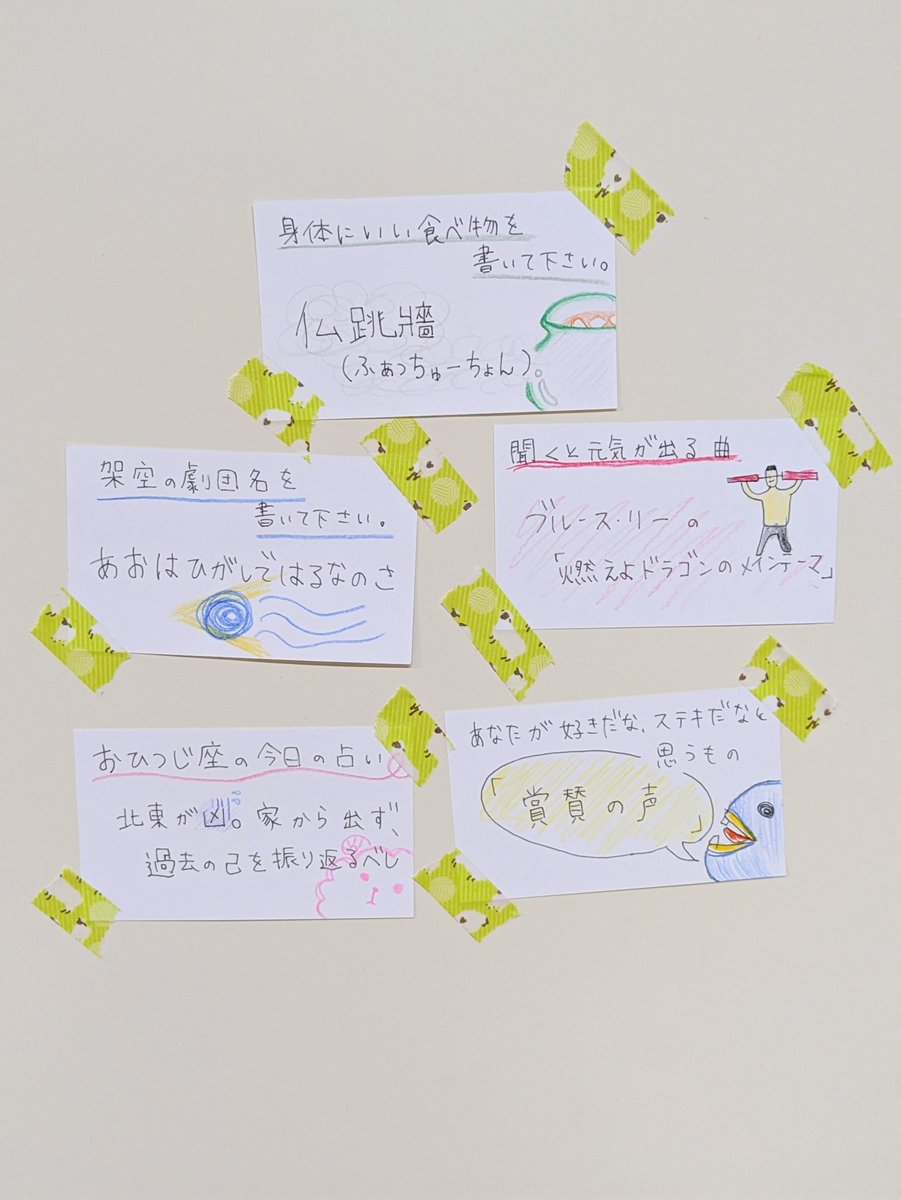 身体にいい食べ物を
書いて下さい。
仏跳牆
(ふぁっちゅーちょん)。
架空の劇団名を
書いて下さい。
あおはひがしではるなのさ
聞くと元気が出る曲
ブルース・リーの
「燃えよドラゴンのメインテーマ」
おひつじ座の今日の占い
北東が凶。家から出ず、
過去の己を振り返るべし
あなたが好きだな、ステキだなと
思うもの
「賞賛の声」